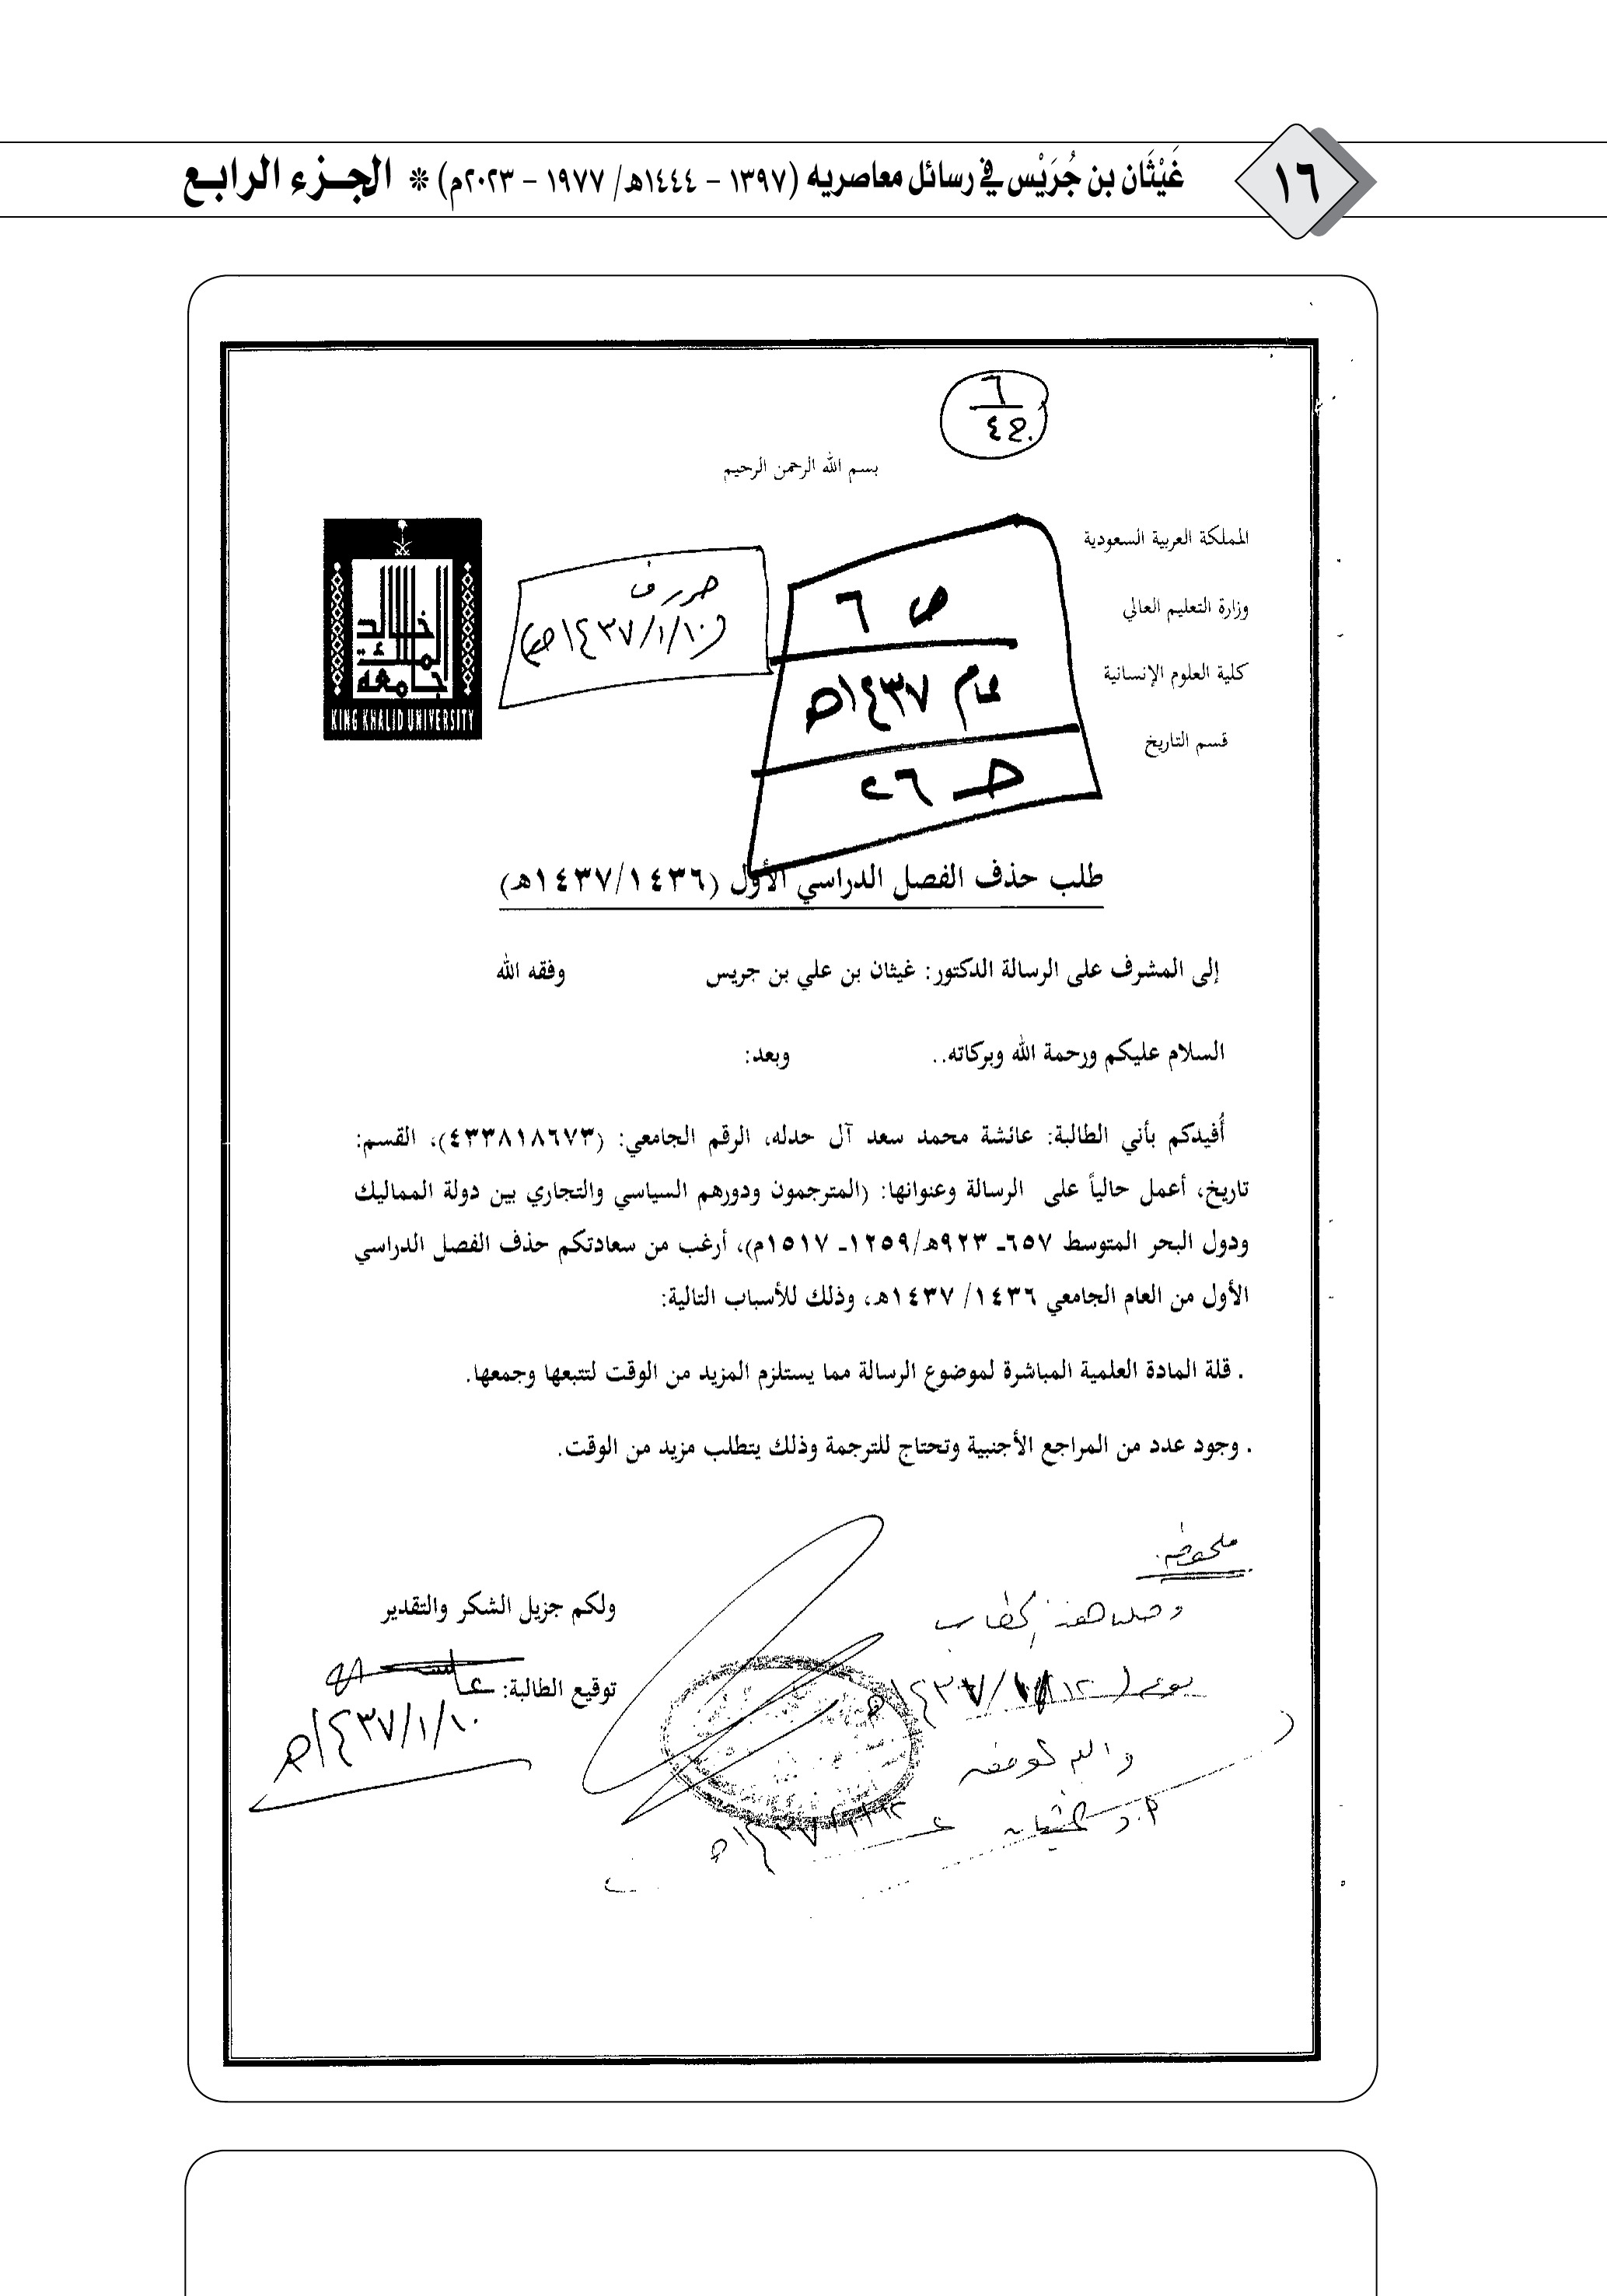 غَيْثَان بن جُرَيْس في رسائل معاصريه (١٣٩٧ – ١٤٤٤هـ/ ١٩٧٧ – ٢٠٢٣م) * الجزء الرابع
١٦
٦
بسم الله الرحمن الرحيم
المملكة العربية السعودية
وزارة التعليم العالي
كلية العلوم الإنسانية
قسم التاريخ
ص ٦
عام ١٤٣٧هـ
حـ ٢٦
حرر في
(١٤٣٧/١/١٠هـ)
خالد
الملك
جامعة
KING KHALID UNIVERSITY
طلب حذف الفصل الدراسي الأول (١٤٣٧/١٤٣٦هـ)
إلى المشرف على الرسالة الدكتور: غيثان بن علي بن جريس وفقه الله
السلام عليكم ورحمة الله وبركاته.. وبعد:
أُفيدكم بأني الطالبة: عائشة محمد سعد آل حدله، الرقم الجامعي: (٤٣٣٨١٨٦٧٣)، القسم:
تاريخ، أعمل حالياً على الرسالة وعنوانها: (المترجمون ودورهم السياسي والتجاري بين دولة المماليك
ودول البحر المتوسط ٦٥٧ـ ٩٢٣هـ/١٢٥٩ـ ١٥١٧م)، أرغب من سعادتكم حذف الفصل الدراسي
الأول من العام الجامعي ١٤٣٦/ ١٤٣٧هـ، وذلك للأسباب التالية:
. قلة المادة العلمية المباشرة لموضوع الرسالة مما يستلزم المزيد من الوقت لتتبعها وجمعها.
. وجود عدد من المراجع الأجنبية وتحتاج للترجمة وذلك يتطلب مزيد من الوقت.
ولكم جزيل الشكر والتقدير
توقيع الطالبة: عائشة
١٤٣٧/١/١٠هـ
ملحوظة:
وصلنا هذا الخطاب
يوم
والله الموفق
أ.د غيثان